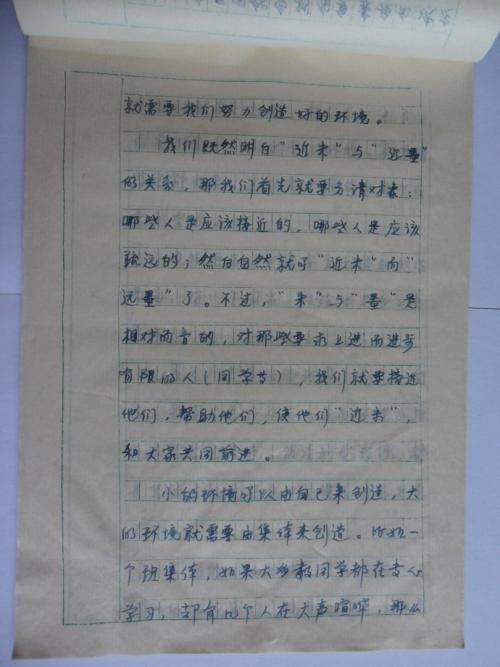 就需要我们努力创造好的环境。
我们既然明白"近朱"与"近墨"
的关系，那我们首先就要分清对象：
哪些人是应该接近的，哪些人是应该
疏远的；然后自然就可"近朱"而"
远墨"了。不过，"朱"与"墨"是
相对而言的，对那些要求上进而进步
有限的人（同学等），我们就要接近
他们，帮助他们，使他们"近朱"，
和大家共同前进。
小的环境可以由自己来创造，大
的环境就需要由集体来创造。比如一
个班集体，如果大多数同学都在专心
学习，却有几个人在大声喧哗，那么